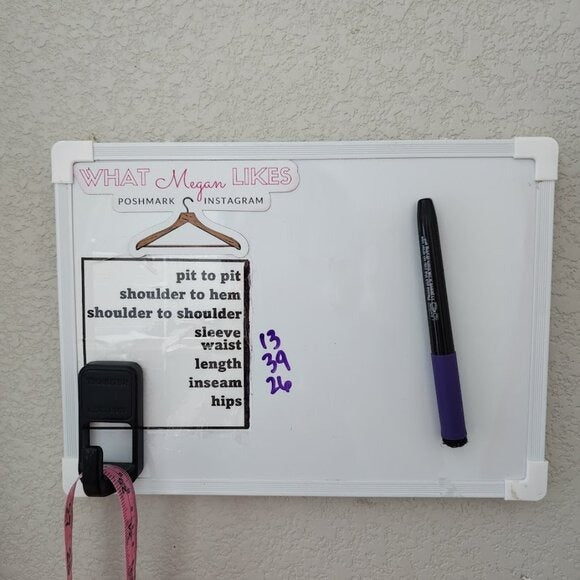 WHAT Megan LIKES
POSHMARK INSTAGRAM
pit to pit
shoulder to hem
shoulder to shoulder
sleeve
waist 13
length 39
inseam 26
hips